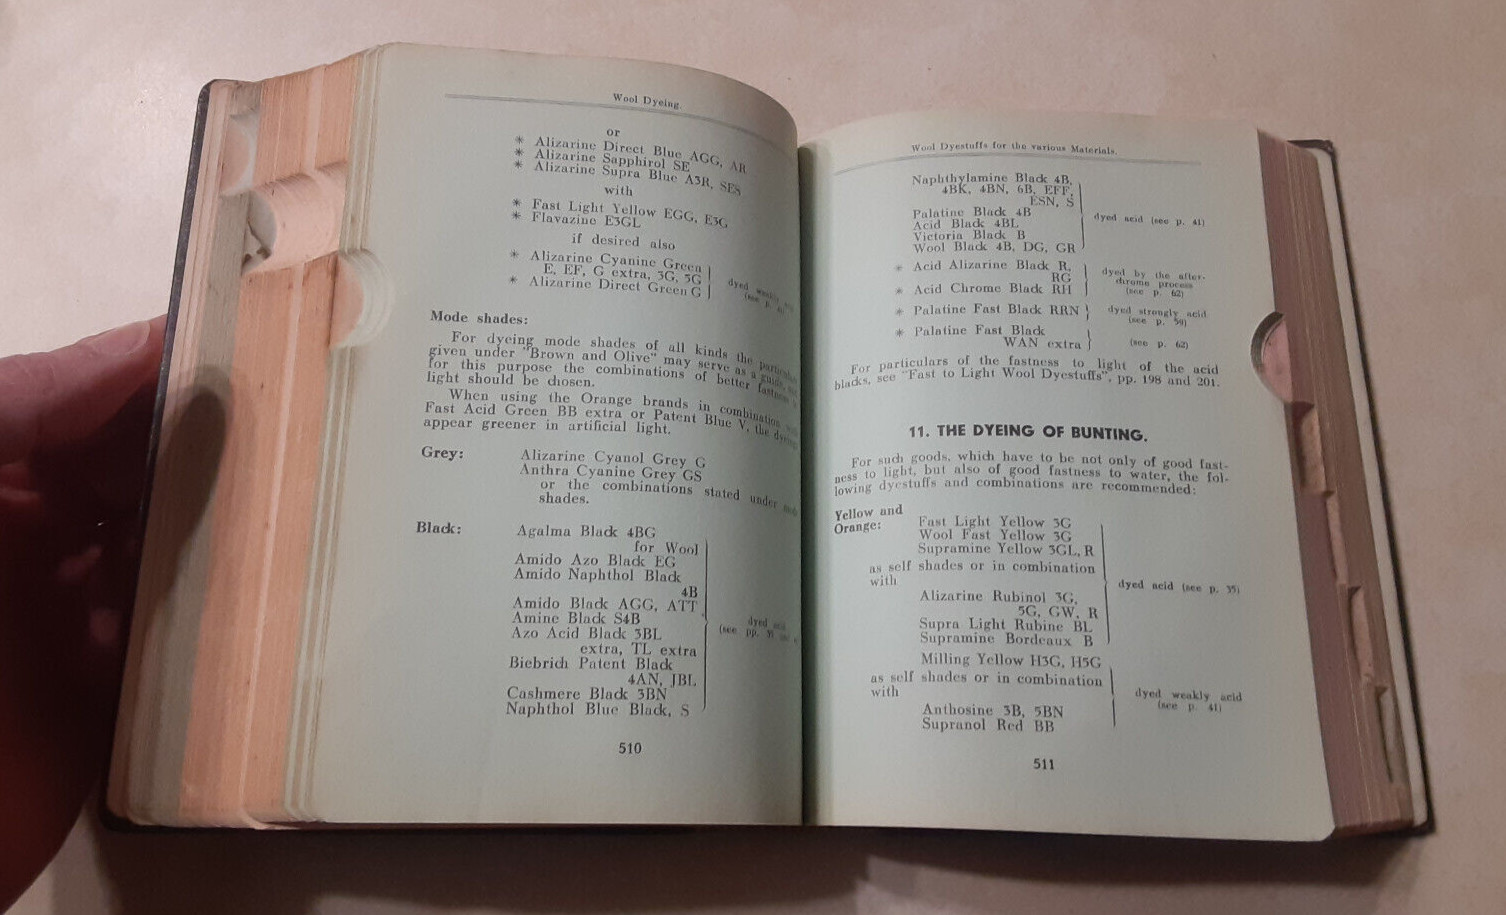 Wool Dyeing.
or
* Alizarine Direct Blue AGG, AR
* Alizarine Sapphirol SE
* Alizarine Supra Blue A3R, SES
with
* Fast Light Yellow EGG, E3G
* Flavazine E3GL
if desired also
* Alizarine Cyanine Green
E, EF, G extra, 3G, 5G
* Alizarine Direct Green G
dyed weakly
(see p.
Mode shades:
For dyeing mode shades of all kinds the
given under "Brown and Olive" may serve as a
for this purpose the combinations of better fastness
light should be chosen.
When using the Orange brands in combination
Fast Acid Green BB extra or Patent Blue V, the
appear greener in artificial light.
Grey: Alizarine Cyanol Grey G
Anthra Cyanine Grey GS
or the combinations stated under
shades.
Black: Agalma Black 4BG
for Wool
Amido Azo Black EG
Amido Naphthol Black
4B
Amido Black AGG, ATT
Amine Black S4B
Azo Acid Black 3BL
extra, TL extra
Biebrich Patent Black
4AN, JBL
Cashmere Black 3BN
Naphthol Blue Black, S
dyed
(see pp.
510
Wool Dyestuffs for the various Materials.
Naphthylamine Black 4B,
4BK, 4BN, 6B, EFF,
ESN, S
Palatine Black 4B
Acid Black 4BL
Victoria Black B
Wool Black 4B, DG, GR
dyed acid (see p. 41)
* Acid Alizarine Black R,
RG
* Acid Chrome Black RH
dyed by the after-
chrome process
(see p. 62)
* Palatine Fast Black RRN
dyed strongly acid
(see p. 59)
* Palatine Fast Black
WAN extra
(see p. 62)
For particulars of the fastness to light of the acid
blacks, see "Fast to Light Wool Dyestuffs", pp. 198 and 201.
11. THE DYEING OF BUNTING.
For such goods, which have to be not only of good fast-
ness to light, but also of good fastness to water, the fol-
lowing dyestuffs and combinations are recommended:
Yellow and
Orange: Fast Light Yellow 3G
Wool Fast Yellow 3G
Supramine Yellow 3GL, R
as self shades or in combination
with
Alizarine Rubinol 3G,
5G, GW, R
Supra Light Rubine BL
Supramine Bordeaux B
dyed acid (see p. 35)
Milling Yellow H3G, H5G
as self shades or in combination
with
Anthosine 3B, 5BN
Supranol Red BB
dyed weakly acid
(see p. 41)
511